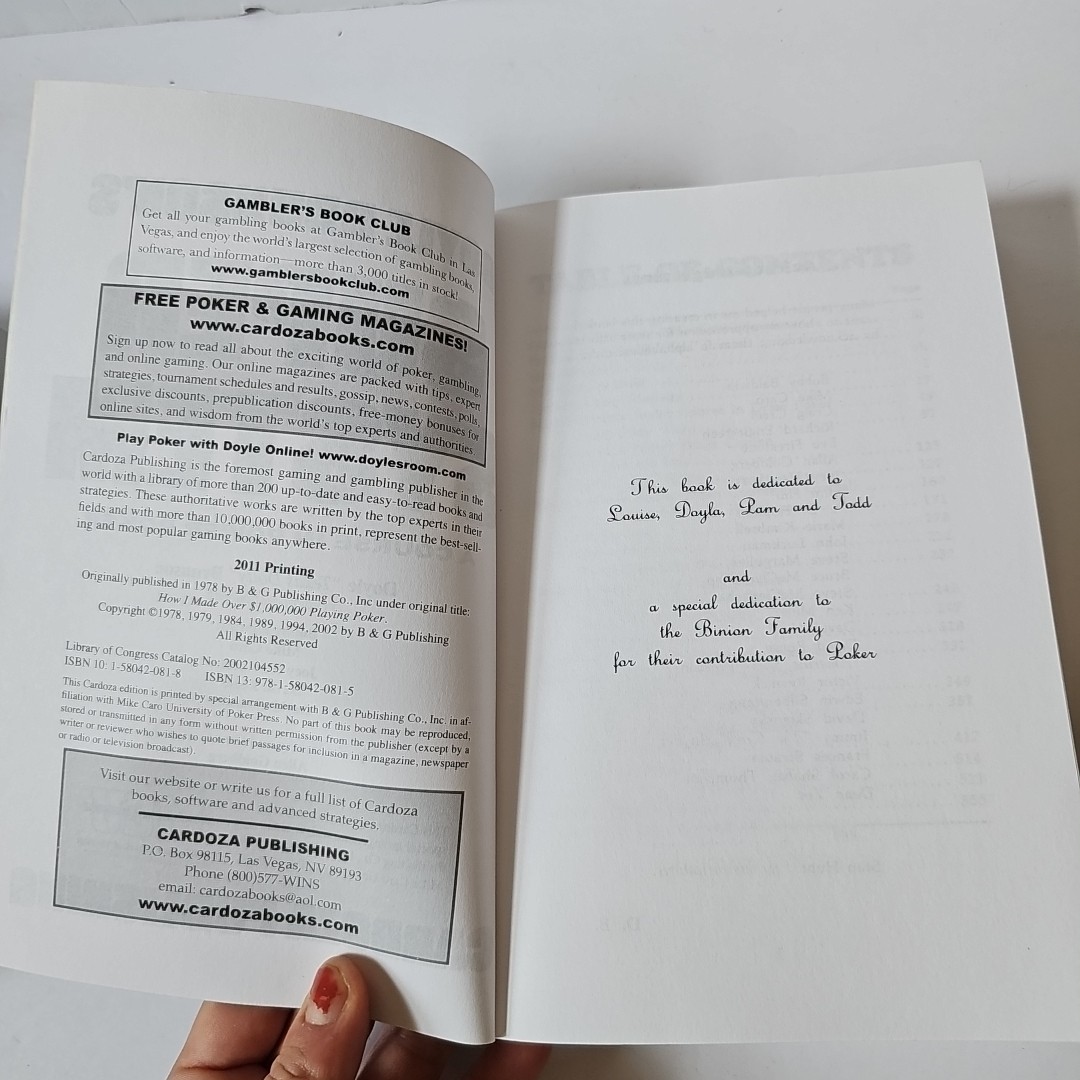 GAMBLER'S BOOK CLUB
Get all your gambling books at Gambler's Book Club in Las
Vegas, and enjoy the world's largest selection of gambling books,
software, and information—more than 3,000 titles in stock!
www.gamblersbookclub.com
FREE POKER & GAMING MAGAZINES!
www.cardozabooks.com
Sign up now to read all about the exciting world of poker, gambling,
and online gaming. Our online magazines are packed with tips, expert
strategies, tournament schedules and results, gossip, news, contests, polls,
exclusive discounts, prepublication discounts, free-money bonuses for
online sites, and wisdom from the world's top experts and authorities.
Play Poker with Doyle Online! www.doylesroom.com
Cardoza Publishing is the foremost gaming and gambling publisher in the
world with a library of more than 200 up-to-date and easy-to-read books and
strategies. These authoritative works are written by the top experts in their
fields and with more than 10,000,000 books in print, represent the best-sell-
ing and most popular gaming books anywhere.
2011 Printing
Originally published in 1978 by B & G Publishing Co., Inc under original title:
How I Made Over $1,000,000 Playing Poker.
Copyright ©1978, 1979, 1984, 1989, 1994, 2002 by B & G Publishing
All Rights Reserved
Library of Congress Catalog No: 2002104552
ISBN 10: 1-58042-081-8 ISBN 13: 978-1-58042-081-5
This Cardoza edition is printed by special arrangement with B & G Publishing Co., Inc. in af-
filiation with Mike Caro University of Poker Press. No part of this book may be reproduced,
stored or transmitted in any form without written permission from the publisher (except by a
writer or reviewer who wishes to quote brief passages for inclusion in a magazine, newspaper
or radio or television broadcast).
Visit our website or write us for a full list of Cardoza
books, software and advanced strategies.
CARDOZA PUBLISHING
P.O. Box 98115, Las Vegas, NV 89193
Phone (800)577-WINS
email: cardozabooks@aol.com
www.cardozabooks.com
This book is dedicated to
Louise, Doyla, Pam and Todd
and
a special dedication to
the Binion Family
for their contribution to Poker